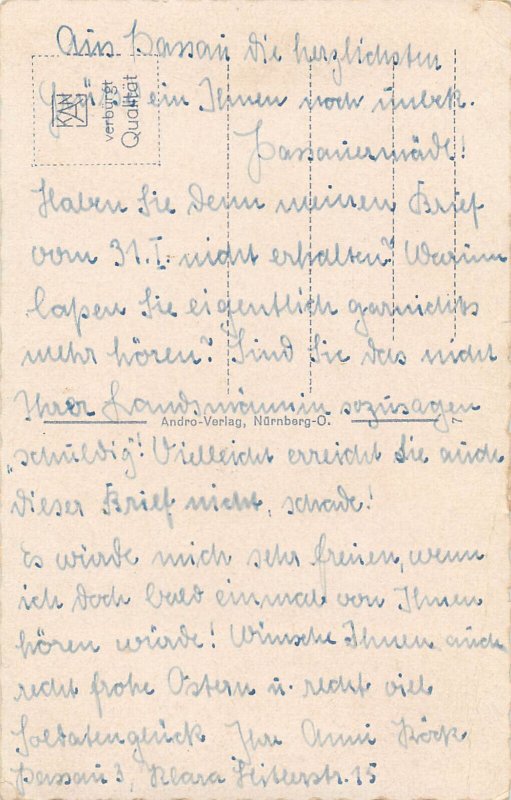 Aus Passau die herzlichsten
Grüße ein Ihnen noch unbek.
Passauermädl!
KAN
verbürgt
Qualität
Haben Sie denn meinen Brief
vom 31. I. nicht erhalten? Warum
laßen Sie eigentlich garnichts
mehr hören? Sind Sie das nicht
Ihrer Landsmännin sozusagen
Andro-Verlag, Nürnberg-O.
7
„schuldig"! Vielleicht erreicht Sie auch
dieser Brief nicht, schade!
Es würde mich sehr freuen, wenn
ich doch bald einmal von Ihnen
hören würde! Wünsche Ihnen auch
recht frohe Ostern u. recht viel
Soldatenglück Ihre Anni Röck
Passau 3, Klara Hitlerstr. 15